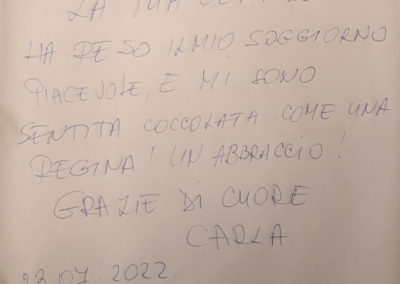 LA TUA
HA RESO IL MIO SOGGIORNO
PIACEVOLE, E MI SONO
SENTITA COCCOLATA COME UNA
REGINA! UN ABBRACCIO!
GRAZIE DI CUORE
CARLA
23.07.2022.